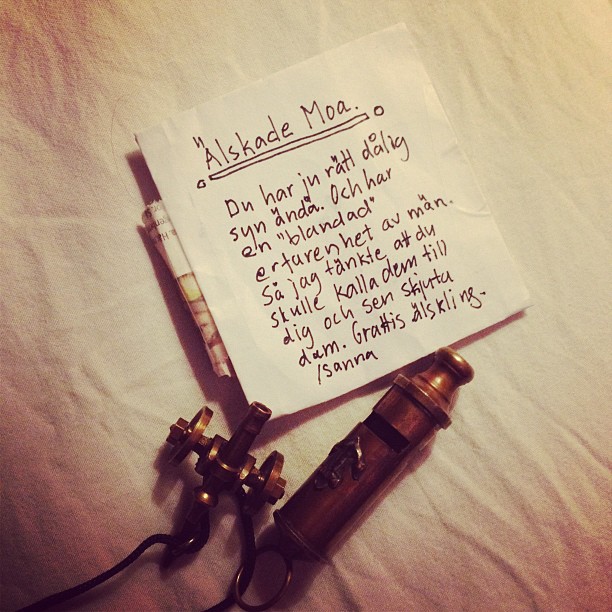 Älskade Moa.
Du har ju rätt dålig
syn ändå. Och har
en "blandad"
erfarenhet av män.
Så jag tänkte att du
skulle kalla dem till
dig och sen skjuta
dem. Grattis älskling.
/Sanna